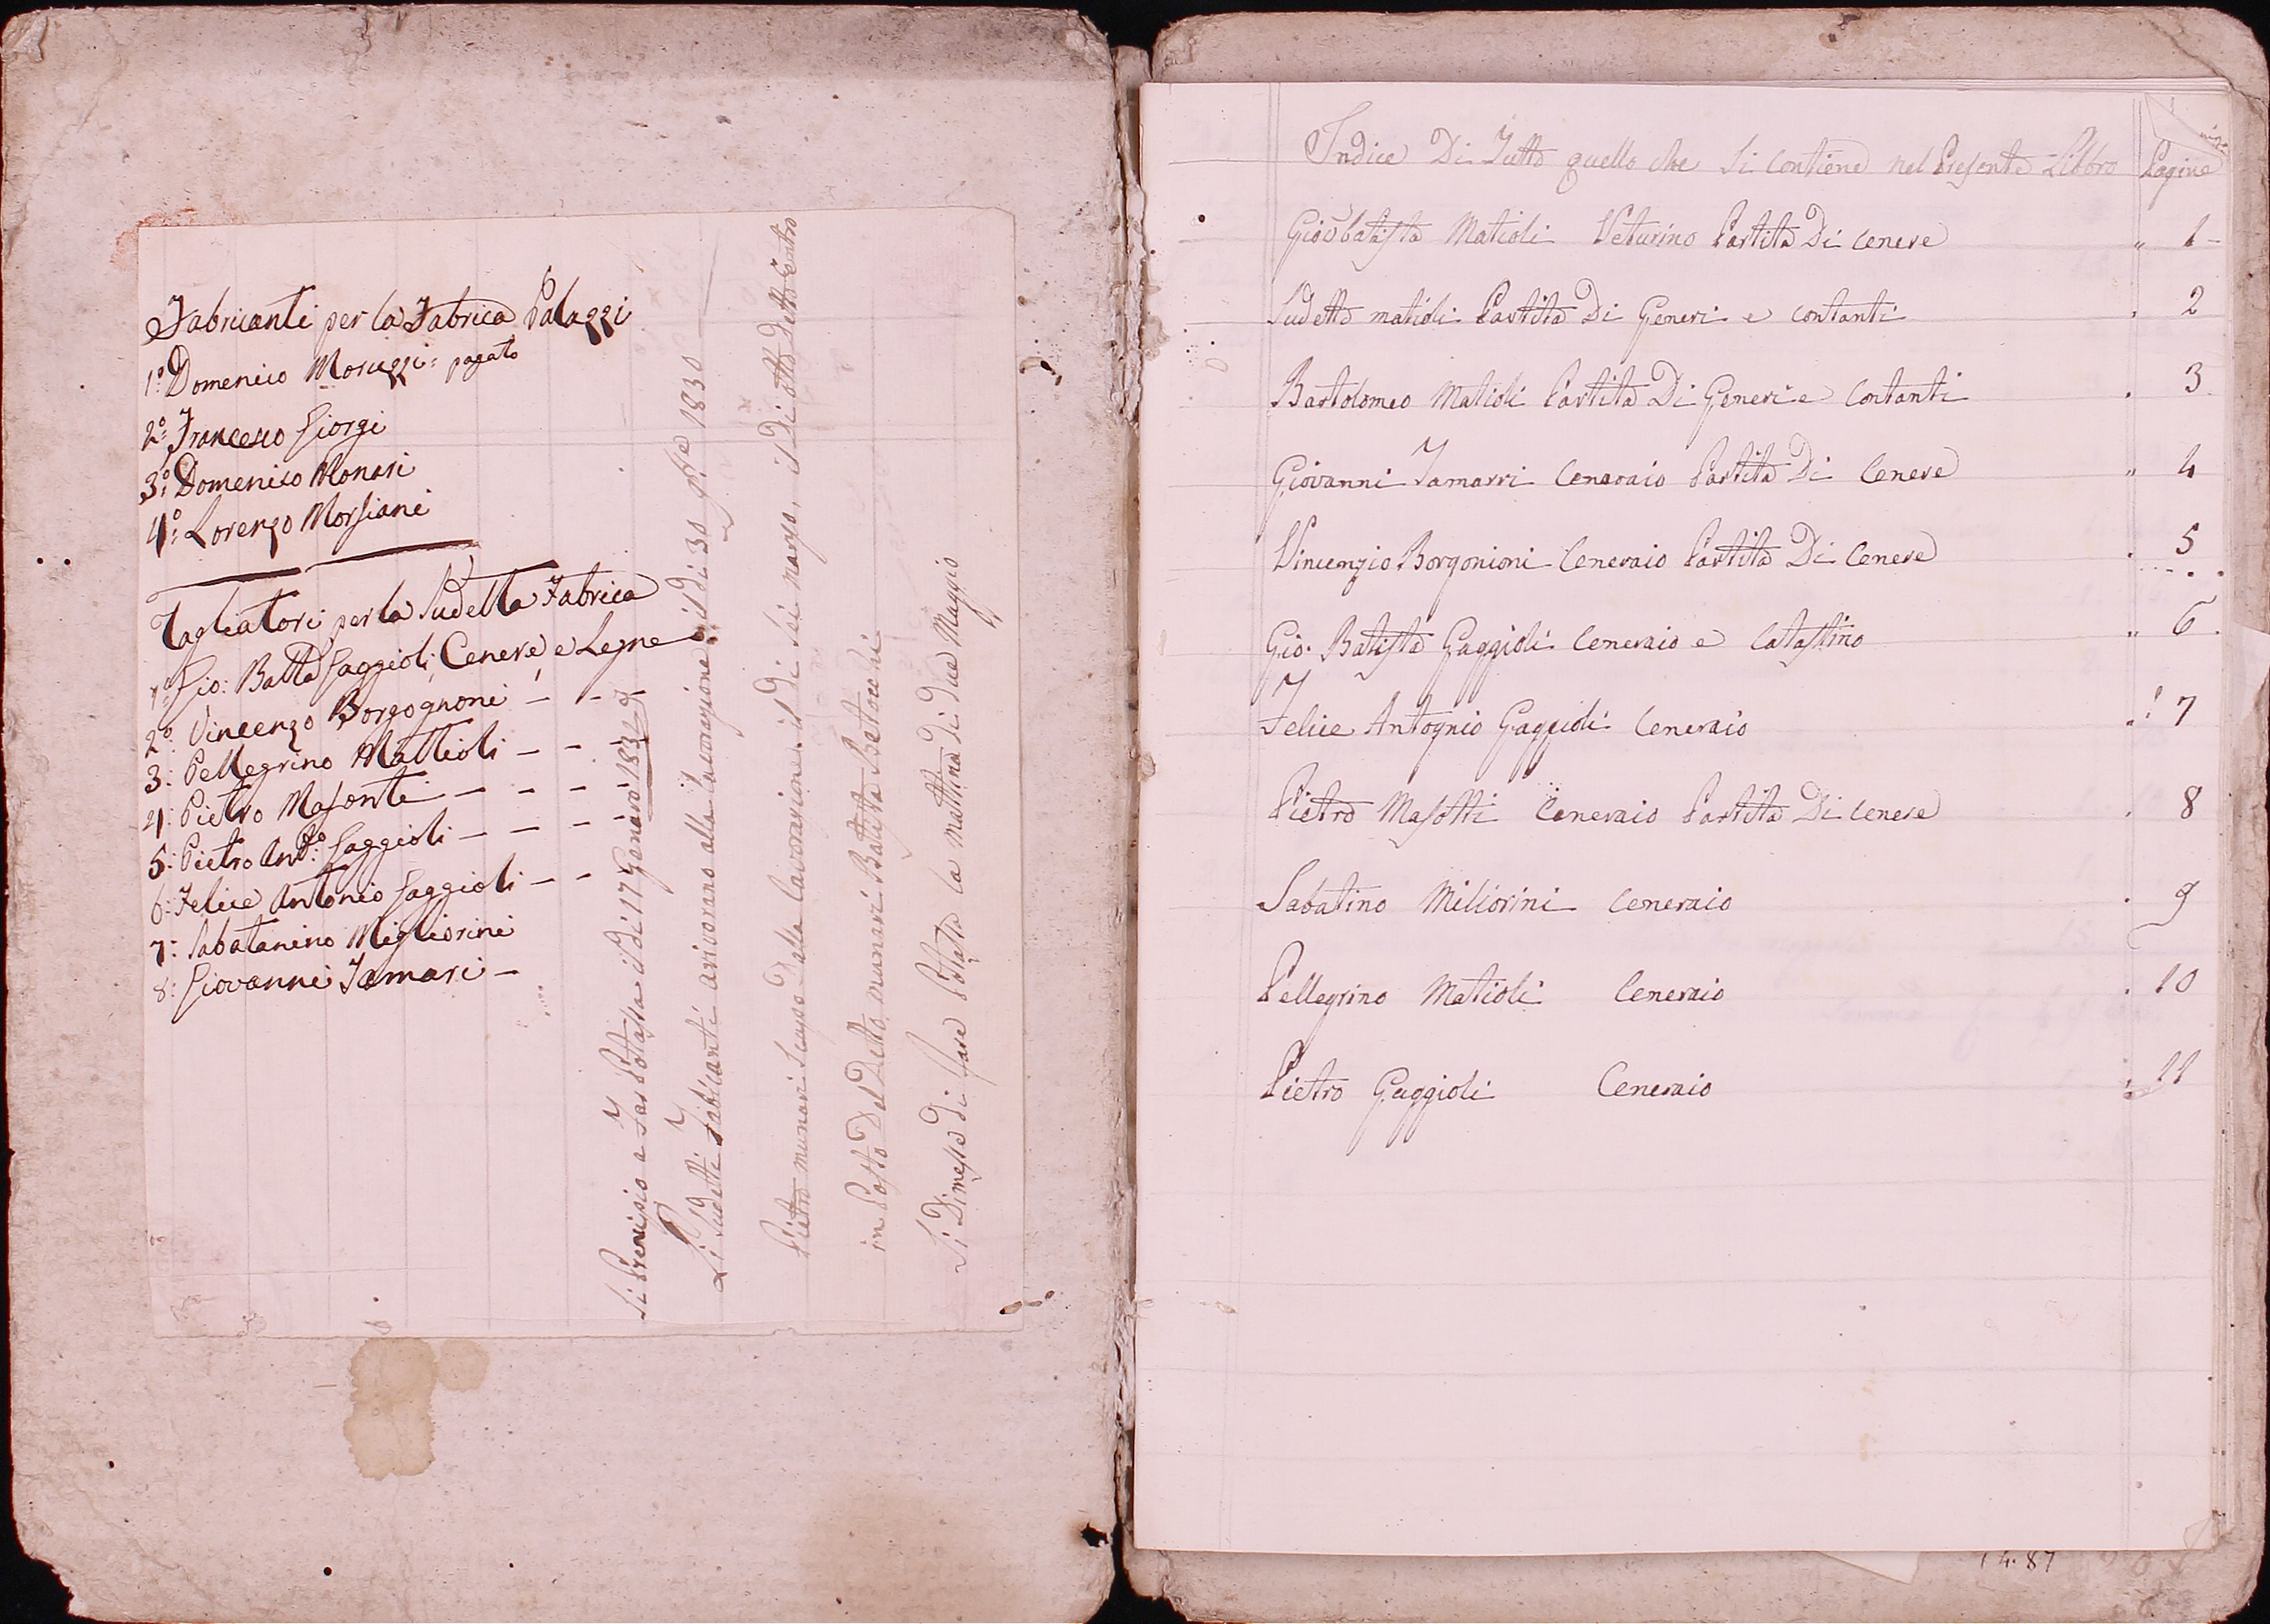 Fabricanti per la Fabrica Palazzi
1º: Domenico Moruzzi: pagato
2º: Francesco Giorgi
3º: Domenico Monari
4º: Lorenzo Morsiani
Tagliatori per la Sudetta Fabrica
1º: Gio: Batta Gaggioli, Cenere e Legne
2º: Vincenzo Borgognoni — - -
3: Pellegrino Mattioli — - -
4: Pietro Masonti — - -
5: Pietro Anto: Gaggioli — — -
6: Felice Antonio Gaggioli — -
7: Sabatanino Migliorini
8: Giovanni Tamari —
Si Prencipio a Far Potassa il Di 17 Genaro 183
Li Sudetti Fabricanti arivorano alla Lavorazione il Di 30 9bre 1830
Pietro munari Scapo Dalla Lavorazione il Di Sei marzo, il Di otto Detto Entro
in Posto Del Detto munari Battista Bertocchi
Si Dimesso di fare Potassa la mattina di Due Maggio
Indice Di Tutto quello che Si contiene nel Presente Libbro Pagine
Giovbatista Matioli Veturino Partita Di cenere " 1
Sudetto matioli Partita Di Generi e contanti . 2
Bartolomeo Matioli Partita Di Generi e Contanti . 3
Giovanni Tamarri Ceneraio Partita Di Cenere " 4
Vincenzio Borgonioni Ceneraio Partita Di Cenere . 5
Gio. Batista Gaggioli Ceneraio e Catastino " 6
Felice Antognio Gaggioli Ceneraio 7
Pietro Masotti Ceneraio Partita Di cenere . 8
Sabatino Miliorini Ceneraio . 9
Pellegrino Matioli Ceneraio . 10
Pietro Gaggioli Ceneraio 11
4.87